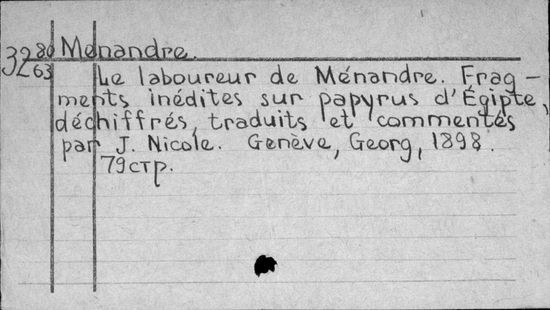 32 80/63 Menandre.
Le laboureur de Ménandre. Frag-
ments inédites sur papyrus d'Égipte,
déchiffrés, traduits et commentés
par J. Nicole. Genève, Georg, 1898.
79стр.